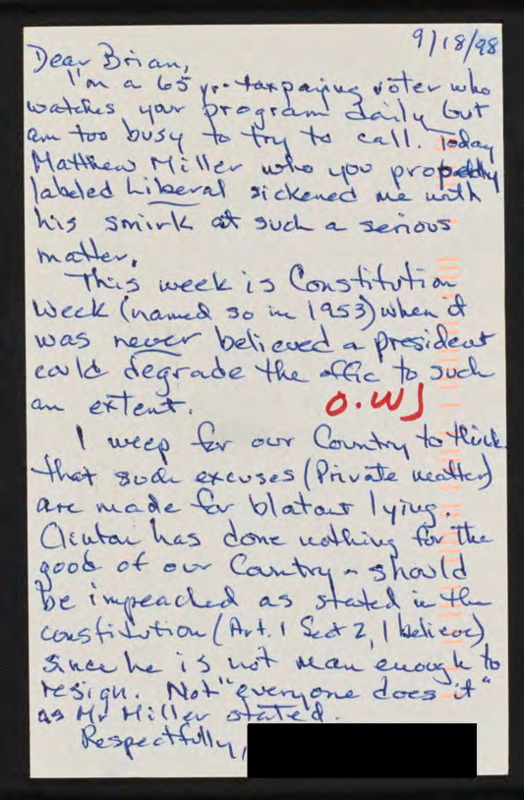 9/18/98
Dear Brian,
I'm a 65 yr. taxpaying voter who
watches your program daily but
am too busy to try to call. Today
Matthew Miller who you properly
labeled Liberal sickened me with
his smirk at such a serious
matter.
This week is Constitution
Week (named so in 1953) when it
was never believed a president
could degrade the offic to such
an extent.
O.WJ
I weep for our Country to think
that such excuses (Private matter)
are made for blatant lying.
Clinton has done nothing for the
good of our Country - should
be impeached as stated in the
constitution (Art. 1 Sect 2, I believe)
since he is not man enough to
resign. Not "everyone does it"
as Mr Miller stated.
Respectfully,